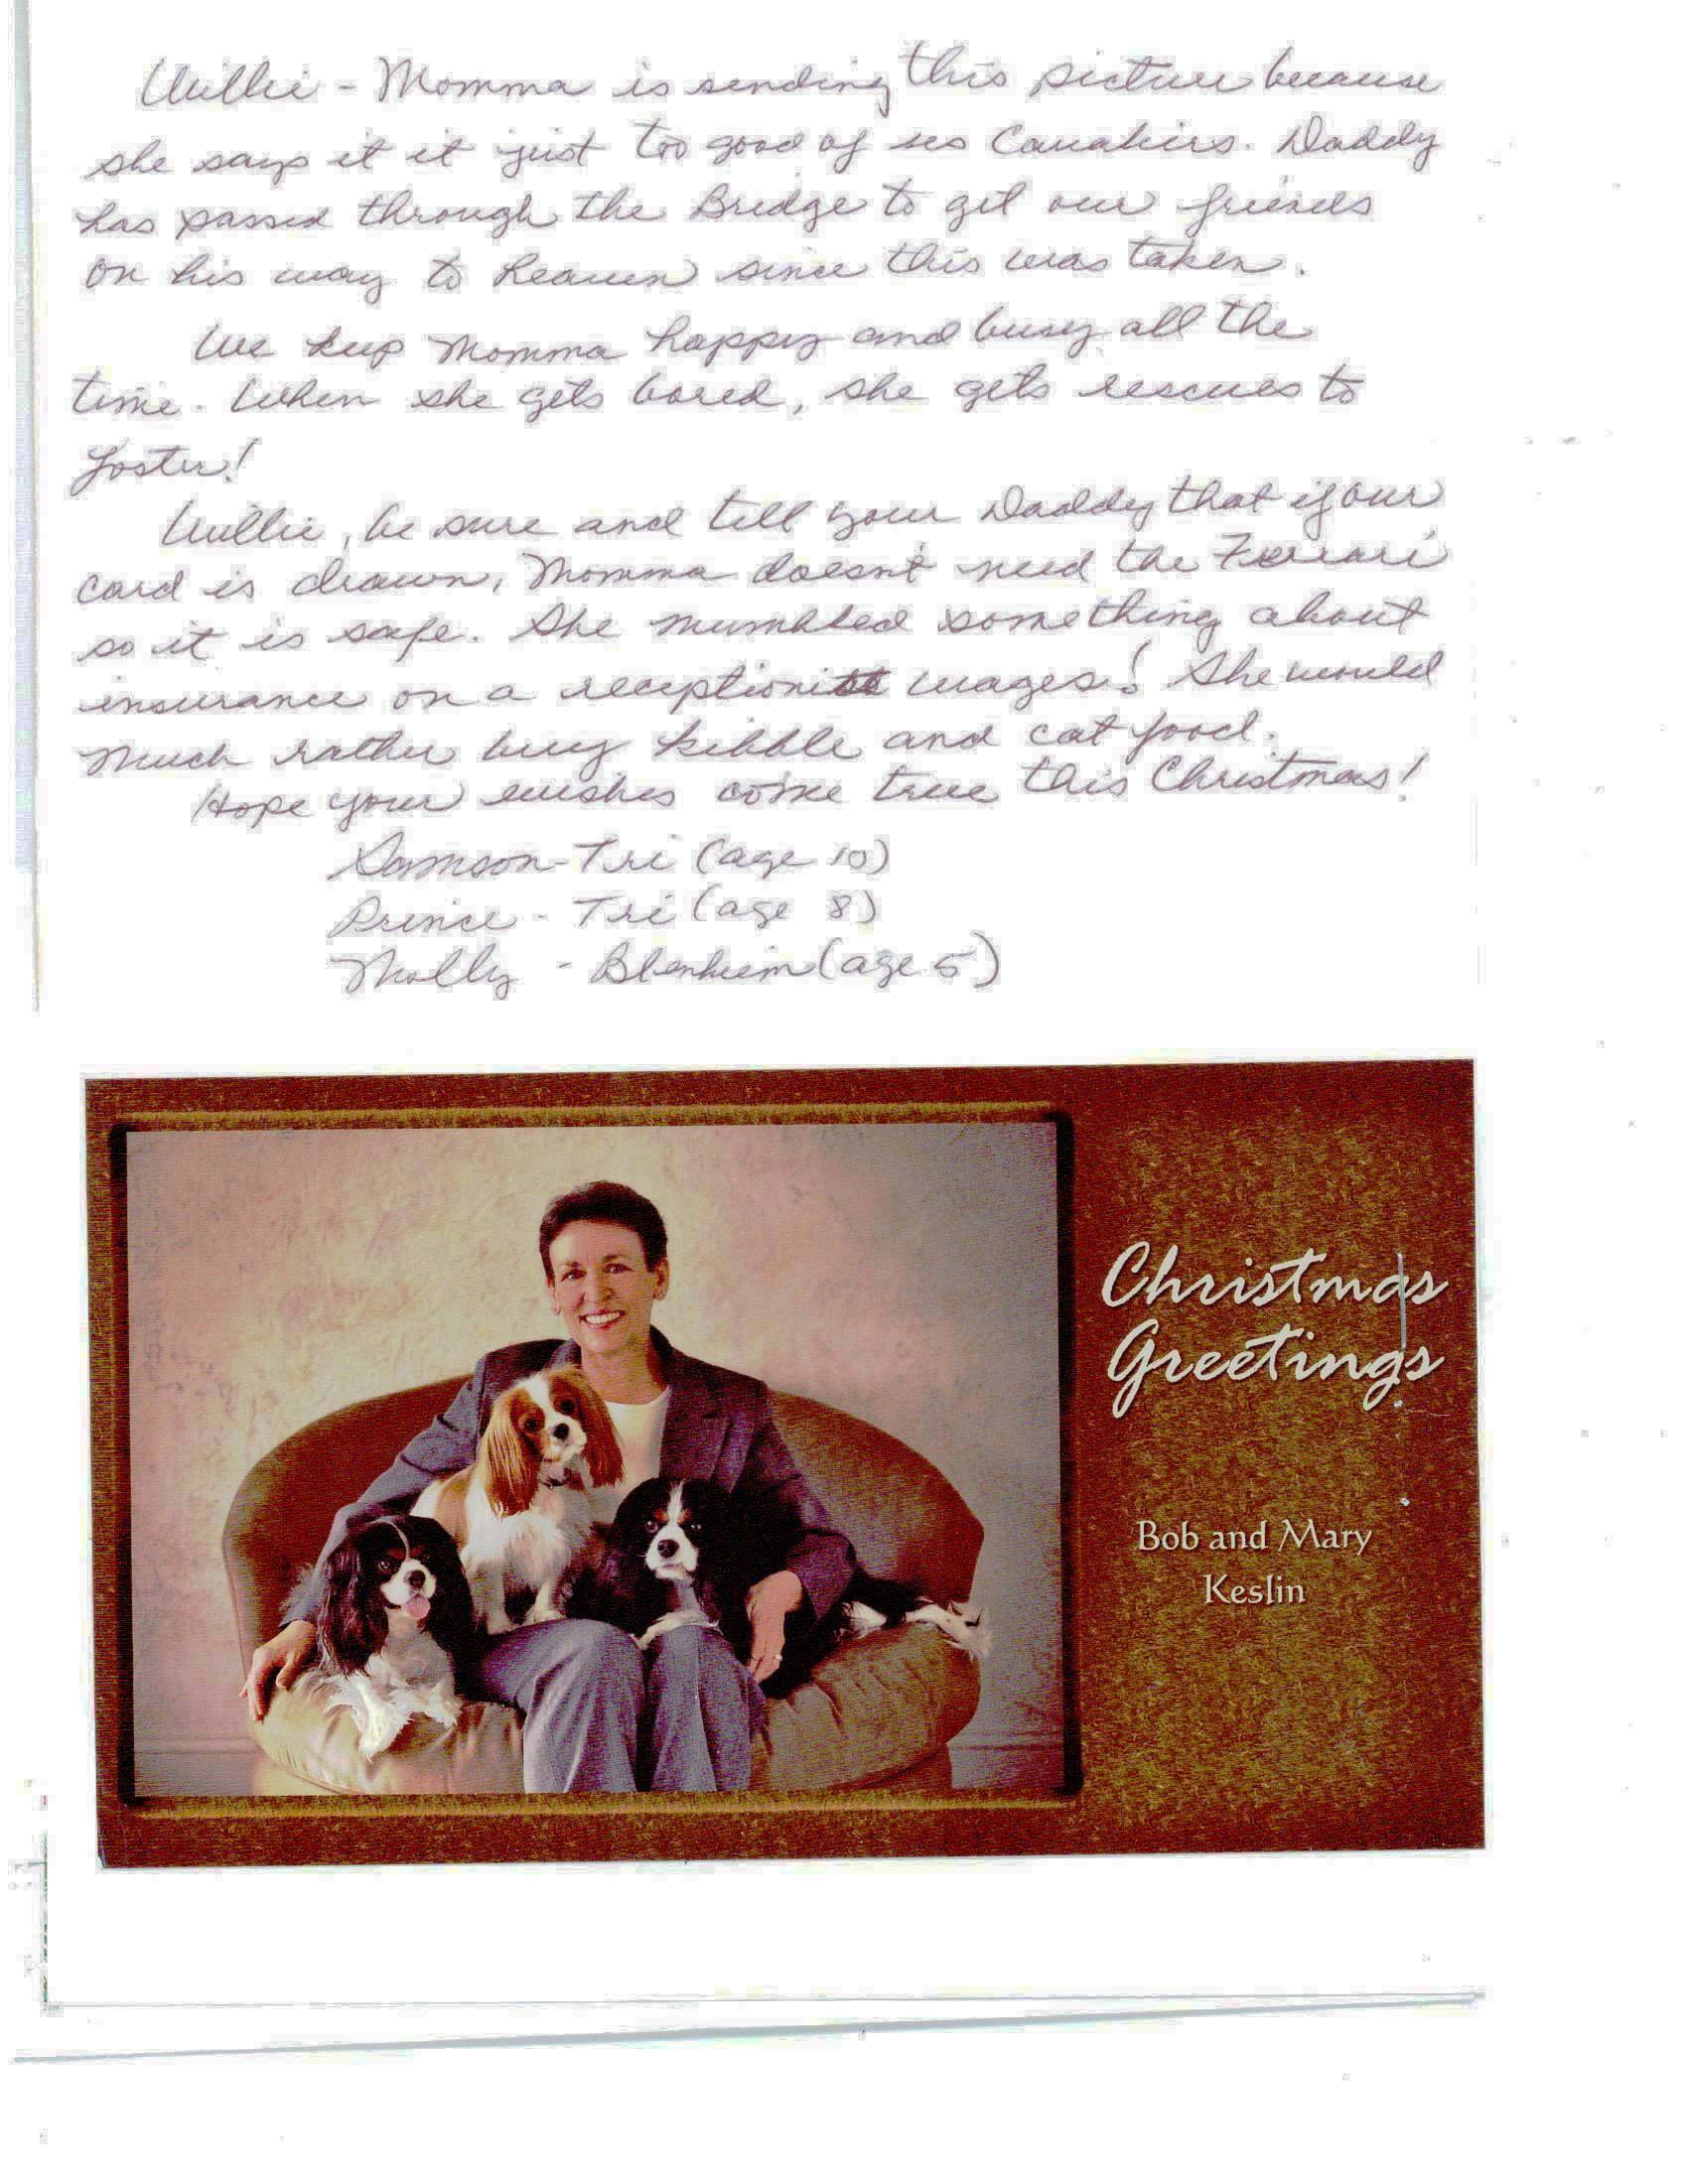 Willie - Momma is sending this picture because
she says it it just too good of us Cavaliers. Daddy
has passed through the Bridge to get our friends
on his way to heaven since this was taken.
We keep Momma happy and busy all the
time. When she gets bored, she gets rescues to
foster!
Willie, be sure and tell your Daddy that if our
card is drawn, Momma doesn't need the Ferrari
so it is safe. She mumbled something about
insurance on a receptionist wages! She would
much rather buy kibble and cat food.
Hope your wishes come true this Christmas!
Samson - Tri (age 10)
Prince - Tri (age 8)
Molly - Blenheim (age 5)
Christmas
Greetings
Bob and Mary
Keslin